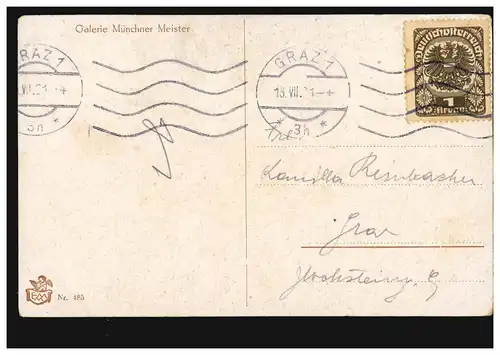 Galerie Münchner Meister
GRAZ 1
18. VII. 21-4
3h
GRAZ 1
18. VII. 21-4
* 3h *
Deutschösterreich
1
Krone
Kamilla Reinbacher
Graz
Nr. 485